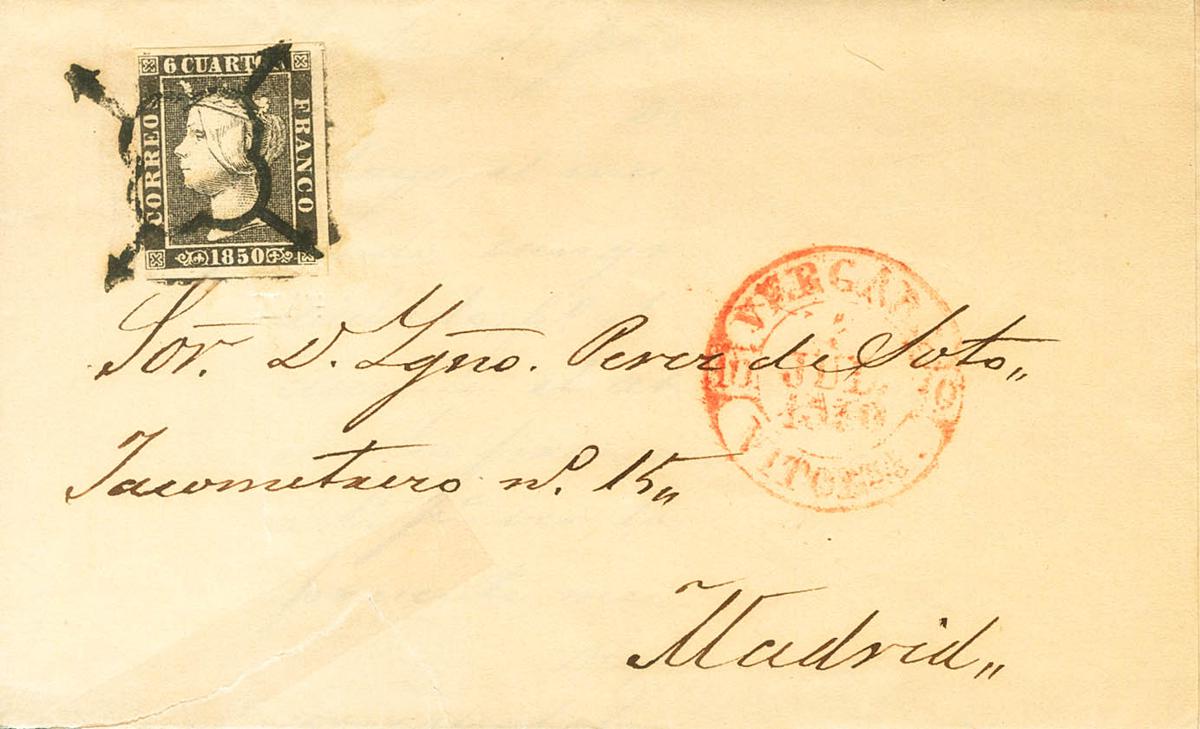 6 CUARTOS
CORREOS
FRANCO
1850
VERGARA
JUL.
1850
VITORIA
Sor. D. Ygno. Perez de Soto„
Jacometrezo nº. 15„
Madrid„